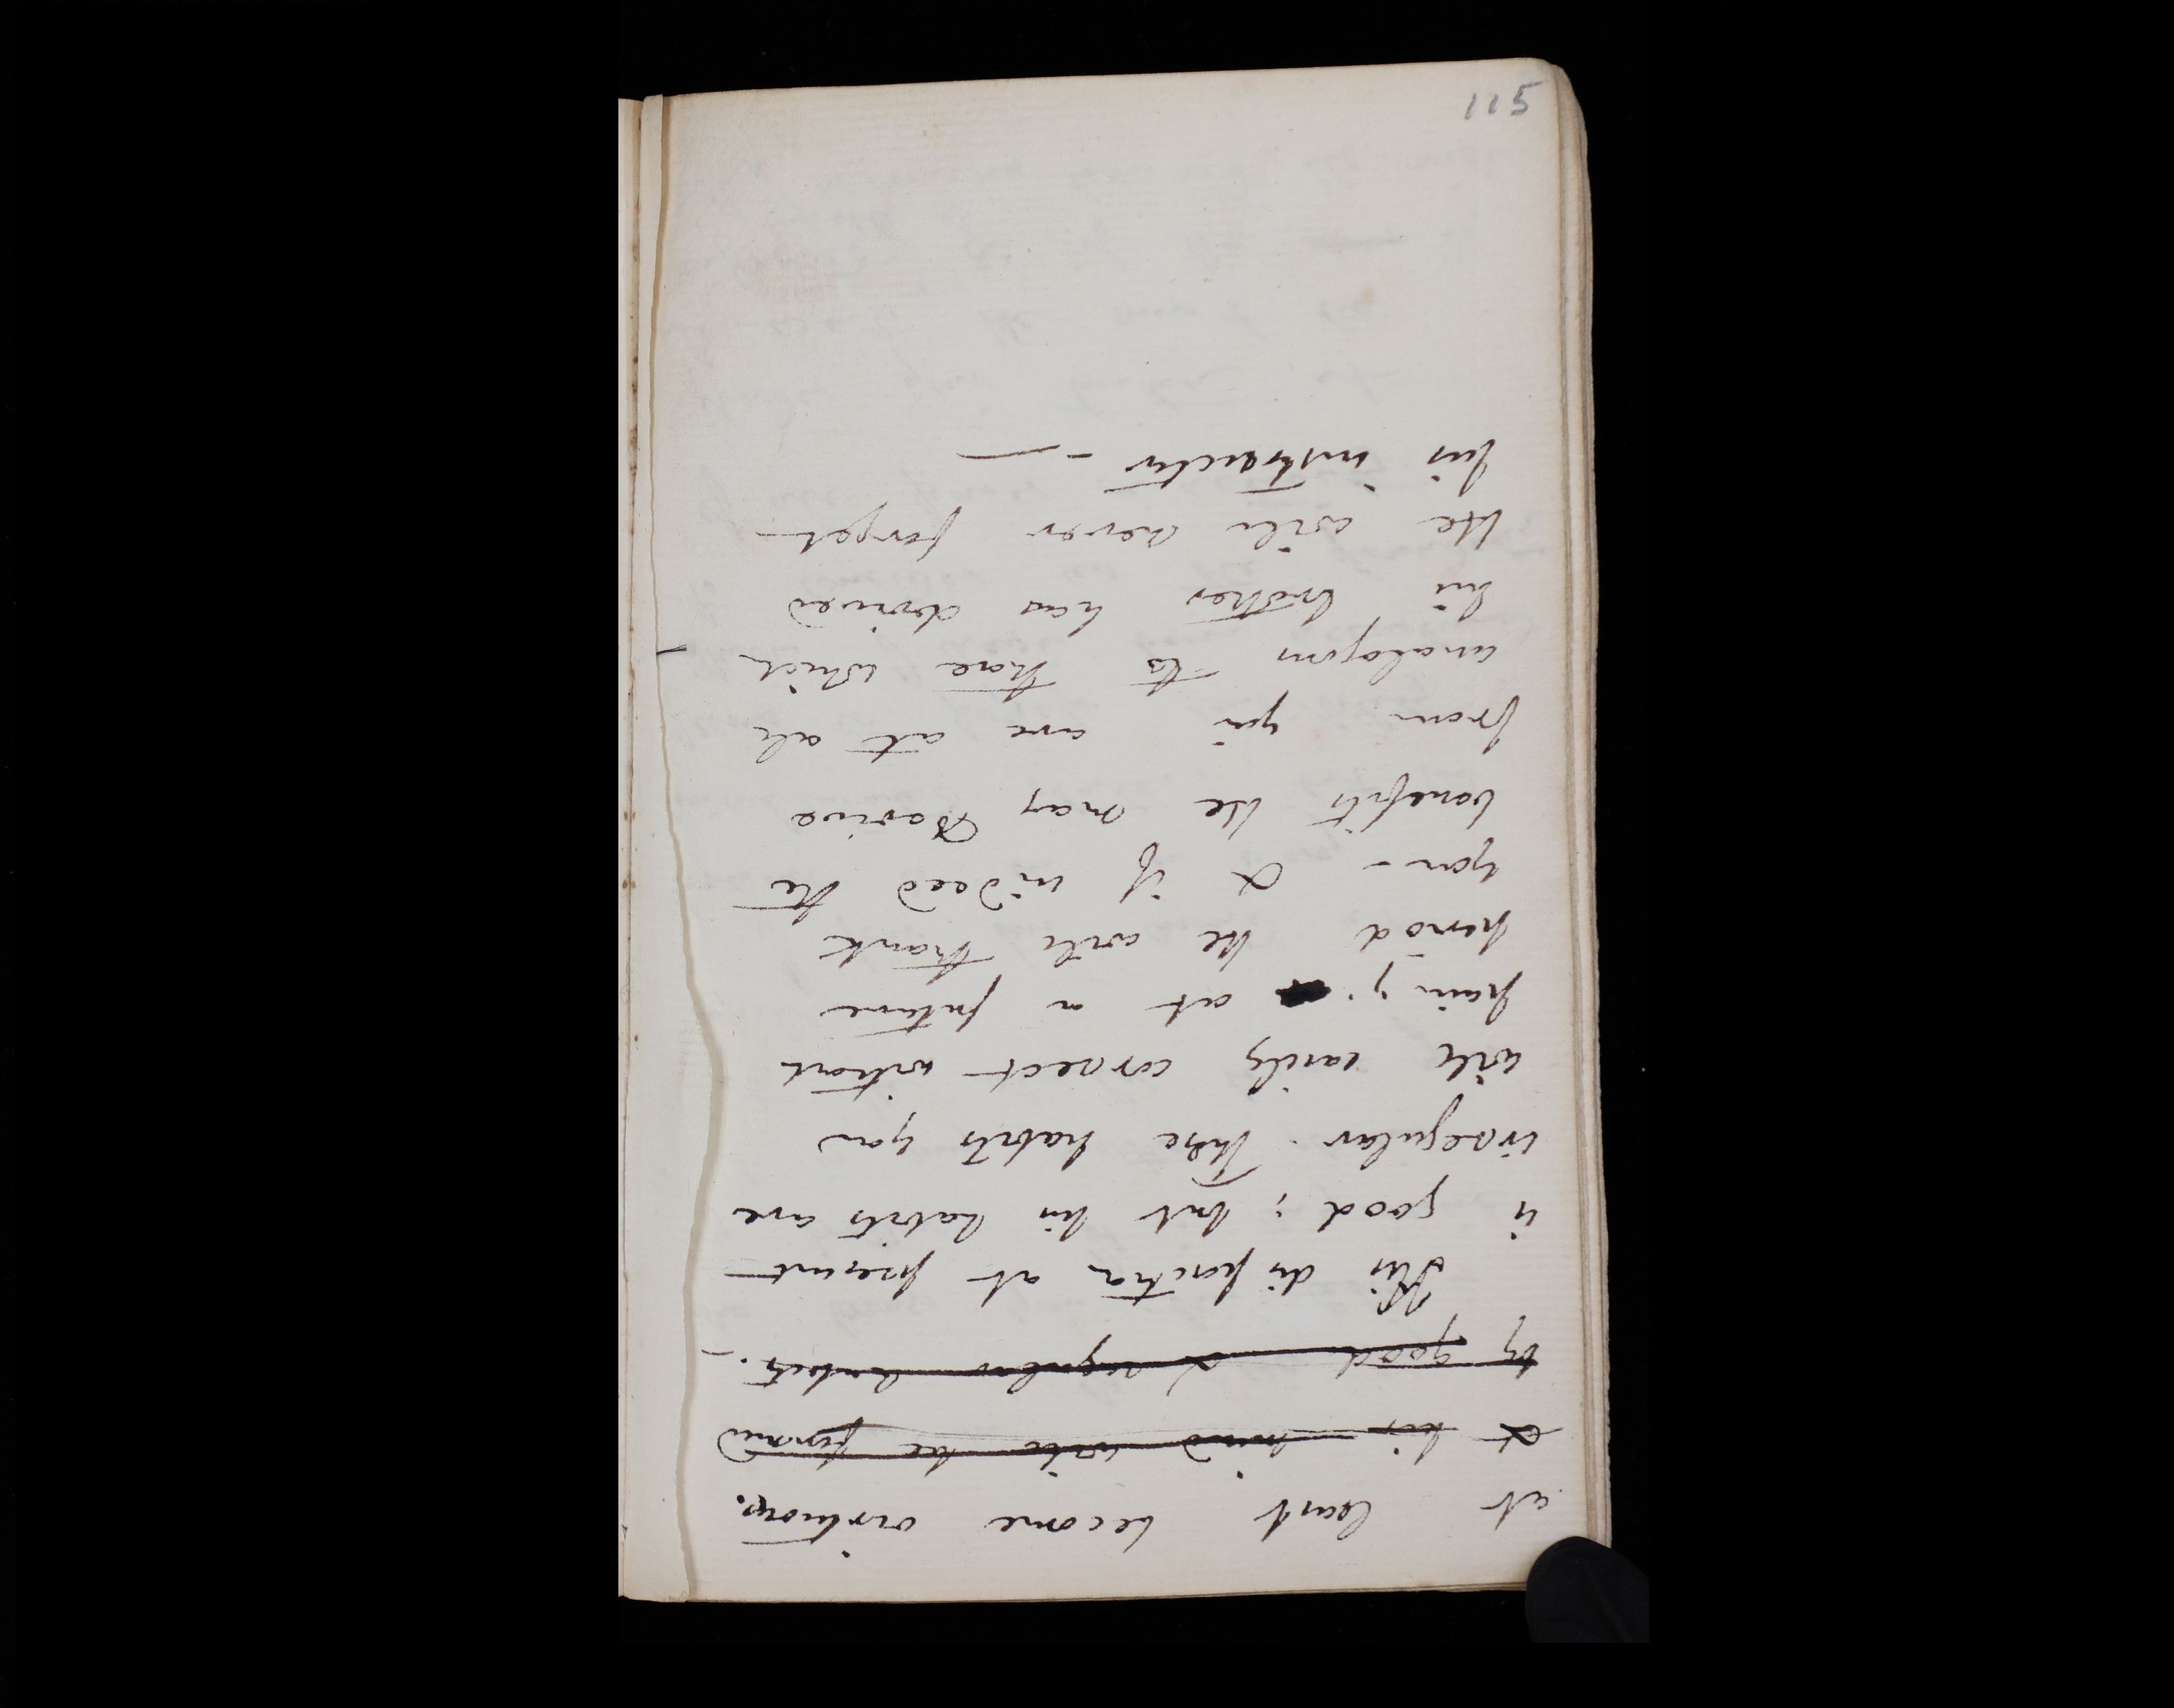 115
at least become virtuous.
& his mind will be formed
by good & regular habits. -
His disposition at present
is good; but his habits are
irregular. These habits you
will easily correct without
pain; at a future
period He will thank
you - & if indeed the
benefits He may Derive
from you are at all
analogous to those which
his brother has derived
He will never forget
his instructor - —